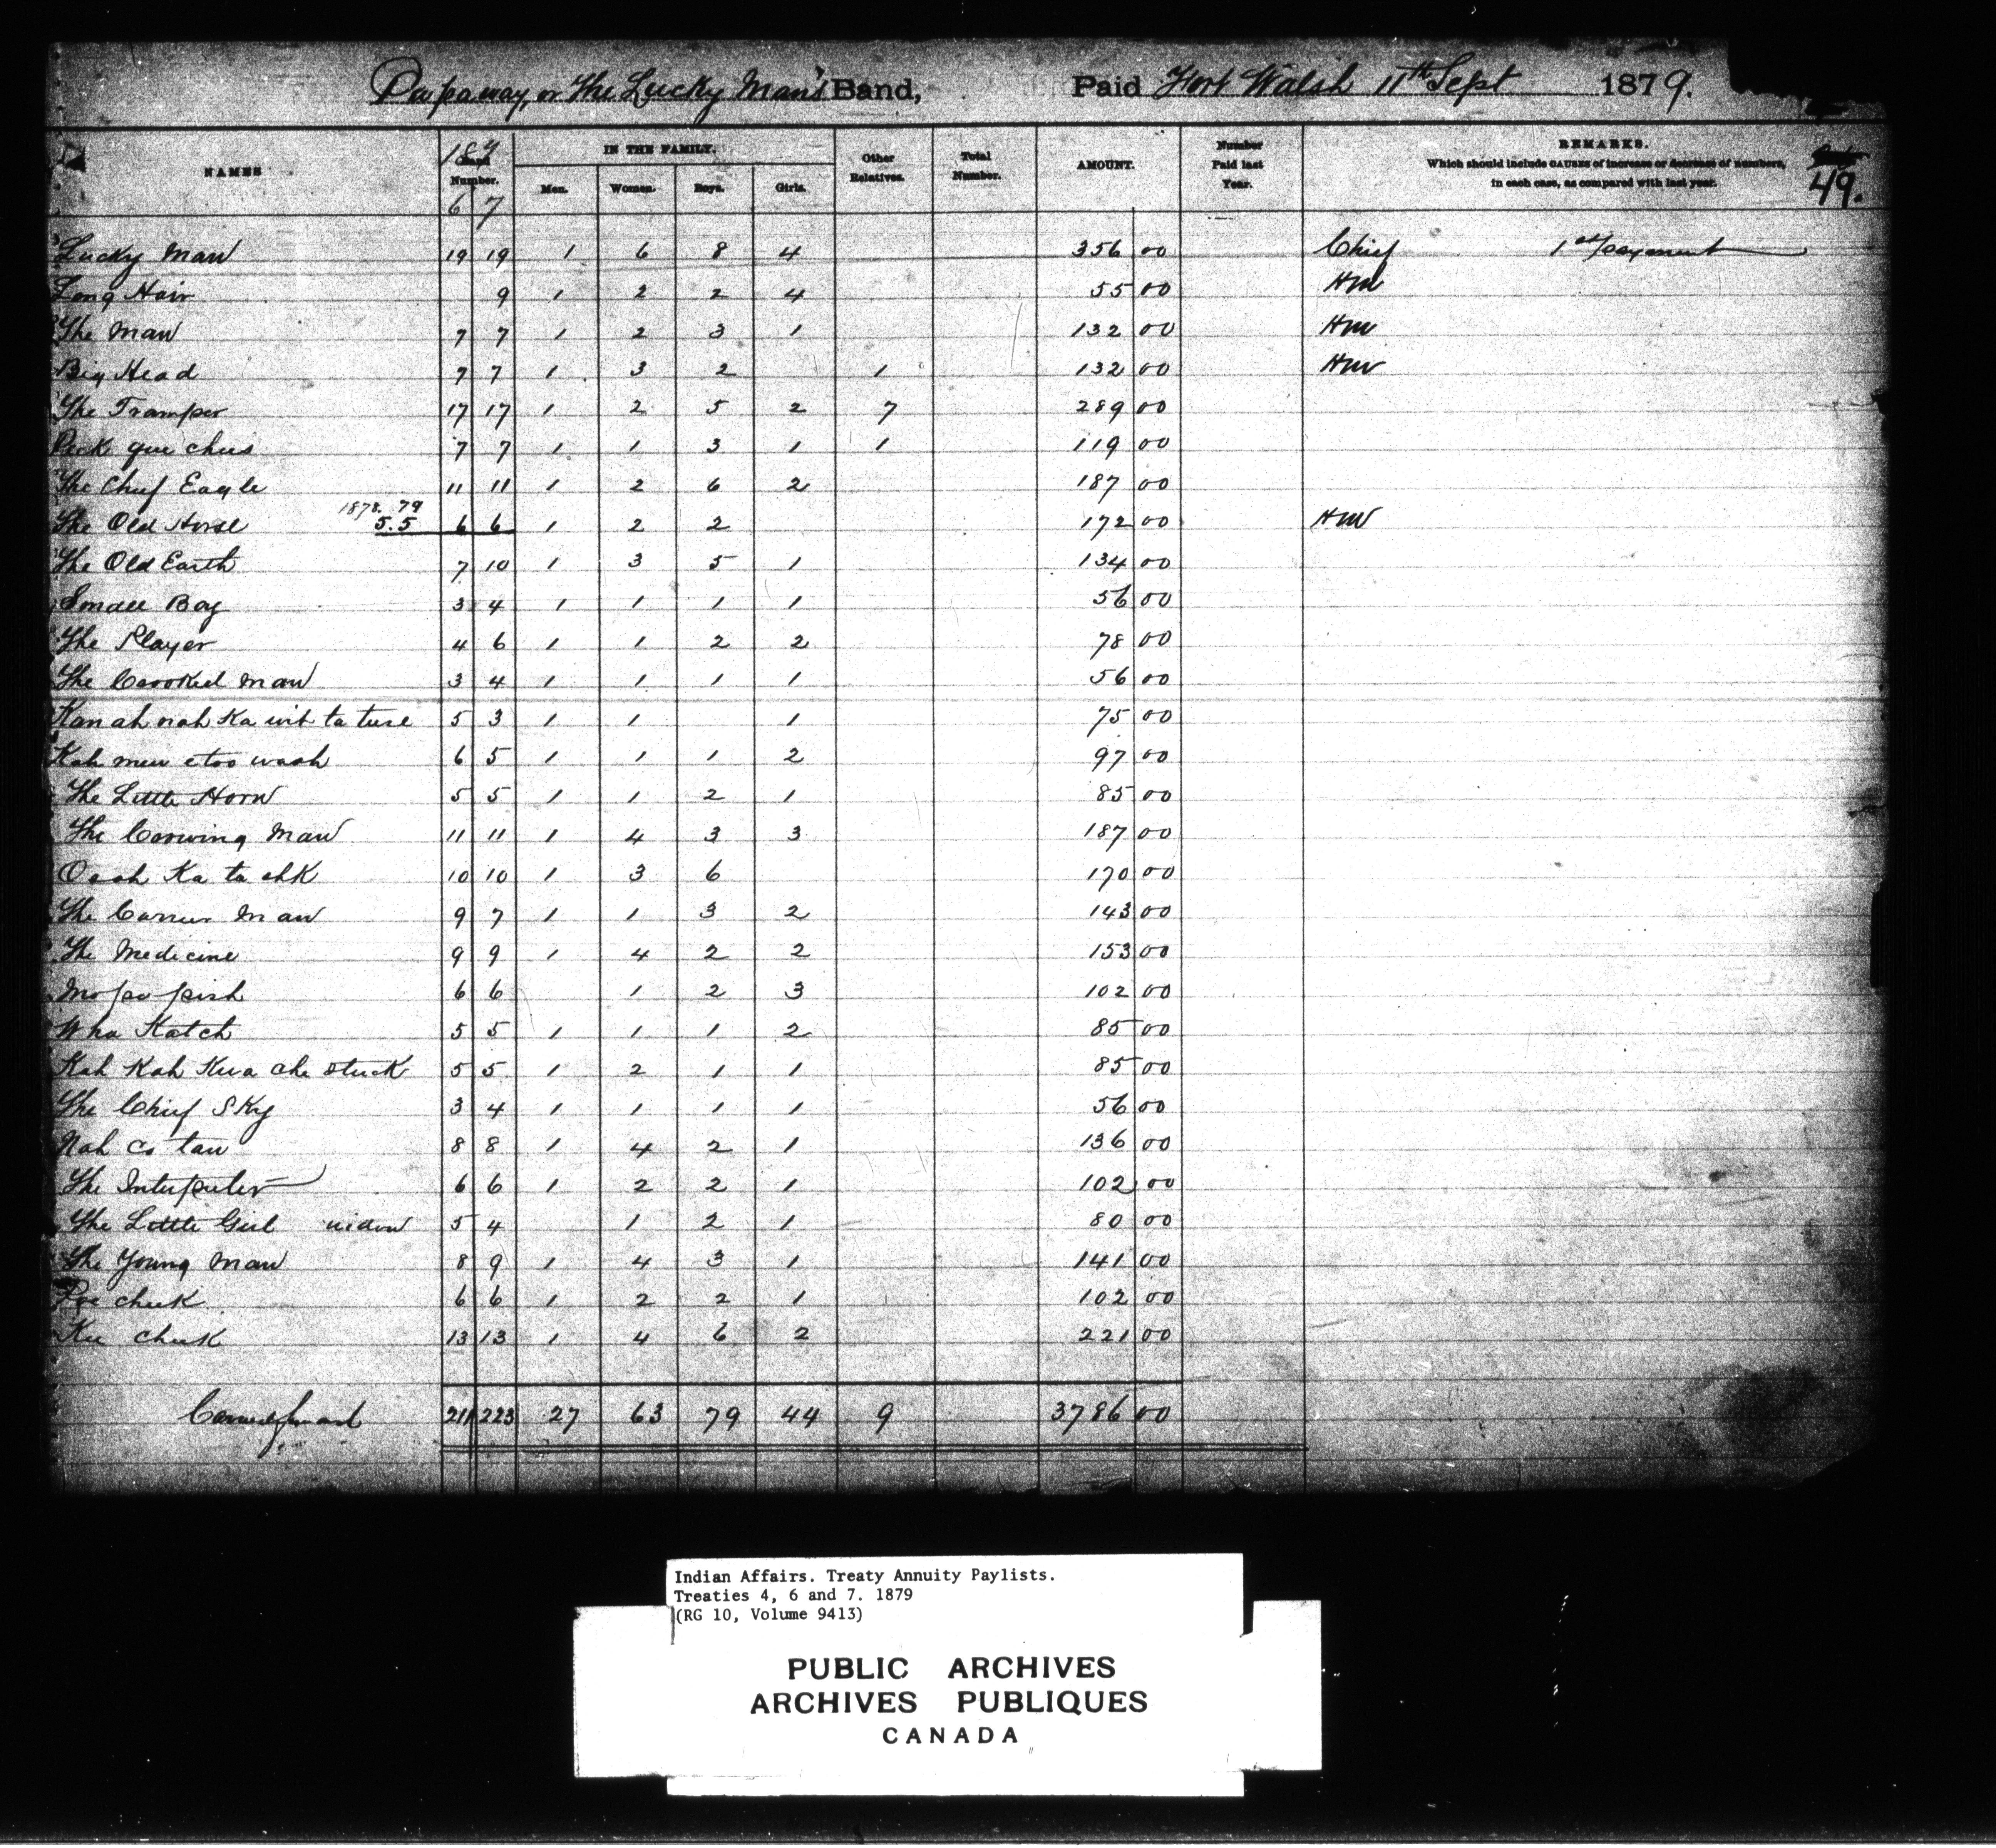 Papaway, or The Lucky Man's Band, Paid Fort Walsh 11th Sept 1879.
NAMES 187 Number. IN THE FAMILY. Men. Women. Boys. Girls. Other Relatives. Total Number. AMOUNT. Number Paid last Year. REMARKS.
Which should include CAUSES of increase or decrease of numbers,
in each case, as compared with last year.
49.
6 7
Lucky Man 19 19 1 6 8 4 356 00 Chief 1st payment
Long Hair 9 1 2 2 4 55 00 HM
The Man 7 7 1 2 3 1 132 00 HM
Big Head 7 7 1 3 2 1 132 00 HM
The Tramper 17 17 1 2 5 2 7 289 00
Peck que chees 7 7 1 1 3 1 1 119 00
The Chief Eagle 11 11 1 2 6 2 187 00
1878. 79
The Old Horse 5.5 6 6 1 2 2 172 00 HM
The Old Earth 7 10 1 3 5 1 134 00
Small Boy 3 4 1 1 1 1 56 00
The Player 4 6 1 1 2 2 78 00
The Crooked Man 3 4 1 1 1 1 56 00
Kan ah nah Ka wit ta tuse 5 3 1 1 1 75 00
Kah mew etoo waah 6 5 1 1 1 2 97 00
The Little Horn 5 5 1 1 2 1 85 00
The Crowing Man 11 11 1 4 3 3 187 00
Ooah Ka ta chk 10 10 1 3 6 170 00
The Man 9 7 1 1 3 2 143 00
The Medicine 9 9 1 4 2 2 153 00
Mo po pish 6 6 1 2 3 102 00
Wha Katch 5 5 1 1 1 2 85 00
Kah Kah Kwa che stuck 5 5 1 2 1 1 85 00
The Chief Sky 3 4 1 1 1 1 56 00
Nah co taw 8 8 1 4 2 1 136 00
The Interpreter 6 6 1 2 2 1 102 00
The Little Girl widow 5 4 1 2 1 80 00
The Young Man 8 9 1 4 3 1 141 00
Pee cheek 6 6 1 2 2 1 102 00
Kee cheek 13 13 1 4 6 2 221 00
Carried forward 211 223 27 63 79 44 9 3786 00
Indian Affairs. Treaty Annuity Paylists.
Treaties 4, 6 and 7. 1879
(RG 10, Volume 9413)
PUBLIC ARCHIVES
ARCHIVES PUBLIQUES
CANADA